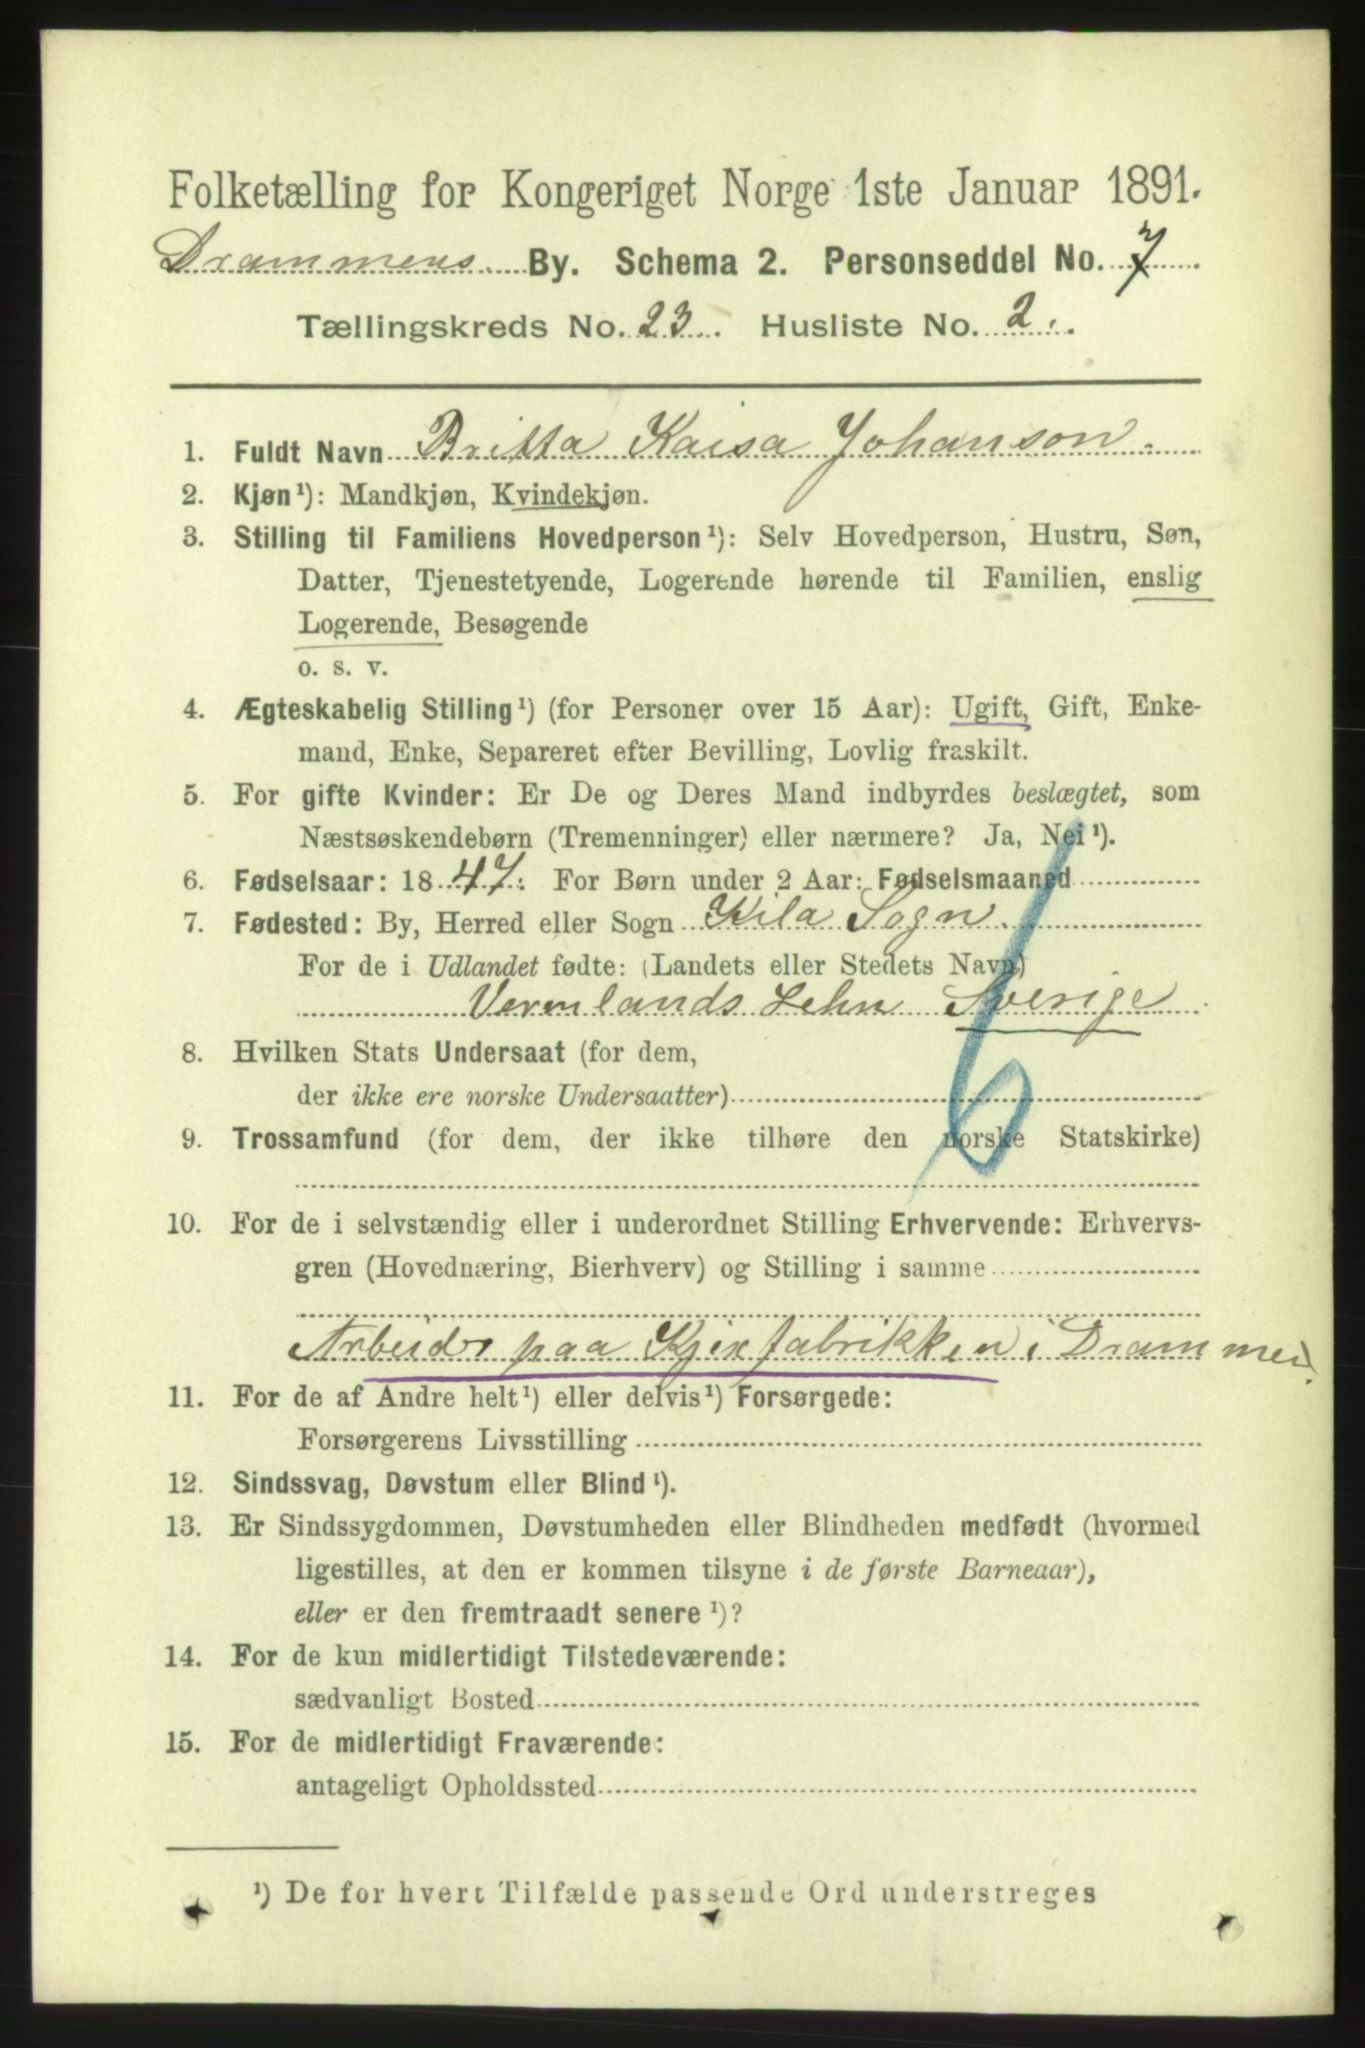 Folketælling for Kongeriget Norge 1ste Januar 1891.
Drammens By. Schema 2. Personseddel No. 7
Tællingskreds No. 23. Husliste No. 2.
1. Fuldt Navn Britta Kaisa Johanson.
2. Kjøn¹): Mandkjøn, Kvindekjøn.
3. Stilling til Familiens Hovedperson¹): Selv Hovedperson, Hustru, Søn,
Datter, Tjenestetyende, Logerende hørende til Familien, enslig
Logerende, Besøgende
o. s. v.
4. Ægteskabelig Stilling¹) (for Personer over 15 Aar): Ugift, Gift, Enke-
mand, Enke, Separeret efter Bevilling, Lovlig fraskilt.
5. For gifte Kvinder: Er De og Deres Mand indbyrdes beslægtet, som
Næstsøskendebørn (Tremenninger) eller nærmere? Ja, Nei¹).
6. Fødselsaar: 1847. For Børn under 2 Aar: Fødselsmaaned
7. Fødested: By, Herred eller Sogn Kila Sogn.
For de i Udlandet fødte: (Landets eller Stedets Navn)
Vermlands Lehn Sverige
6
8. Hvilken Stats Undersaat (for dem,
der ikke ere norske Undersaatter)
9. Trossamfund (for dem, der ikke tilhøre den norske Statskirke)
10. For de i selvstændig eller i underordnet Stilling Erhvervende: Erhvervs-
gren (Hovednæring, Bierhverv) og Stilling i samme
paa i Drammen.
11. For de af Andre helt¹) eller delvis¹) Forsørgede:
Forsørgerens Livsstilling
12. Sindssvag, Døvstum eller Blind¹).
13. Er Sindssygdommen, Døvstumheden eller Blindheden medfødt (hvormed
ligestilles, at den er kommen tilsyne i de første Barneaar),
eller er den fremtraadt senere¹)?
14. For de kun midlertidigt Tilstedeværende:
sædvanligt Bosted
15. For de midlertidigt Fraværende:
antageligt Opholdssted
¹) De for hvert Tilfælde passende Ord understreges